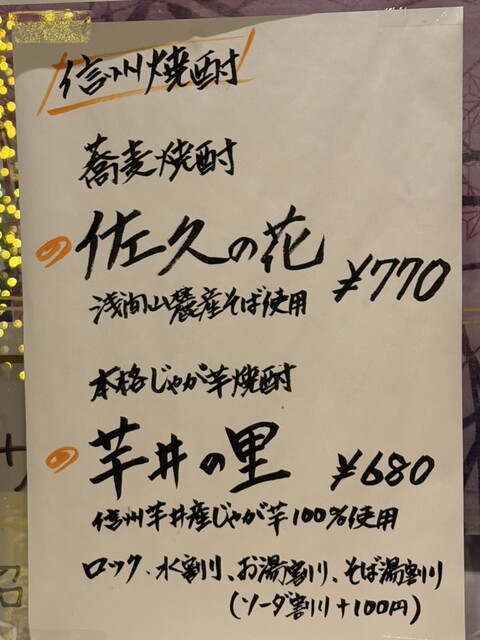 信州焼酎
蕎麦焼酎
佐久の花
¥770
浅間山麓産そば使用
本格じゃが芋焼酎
芋井の里
¥680
信州芋井産じゃが芋100%使用
ロック、水割り、お湯割り、そば湯割り
(ソーダ割り+100円)